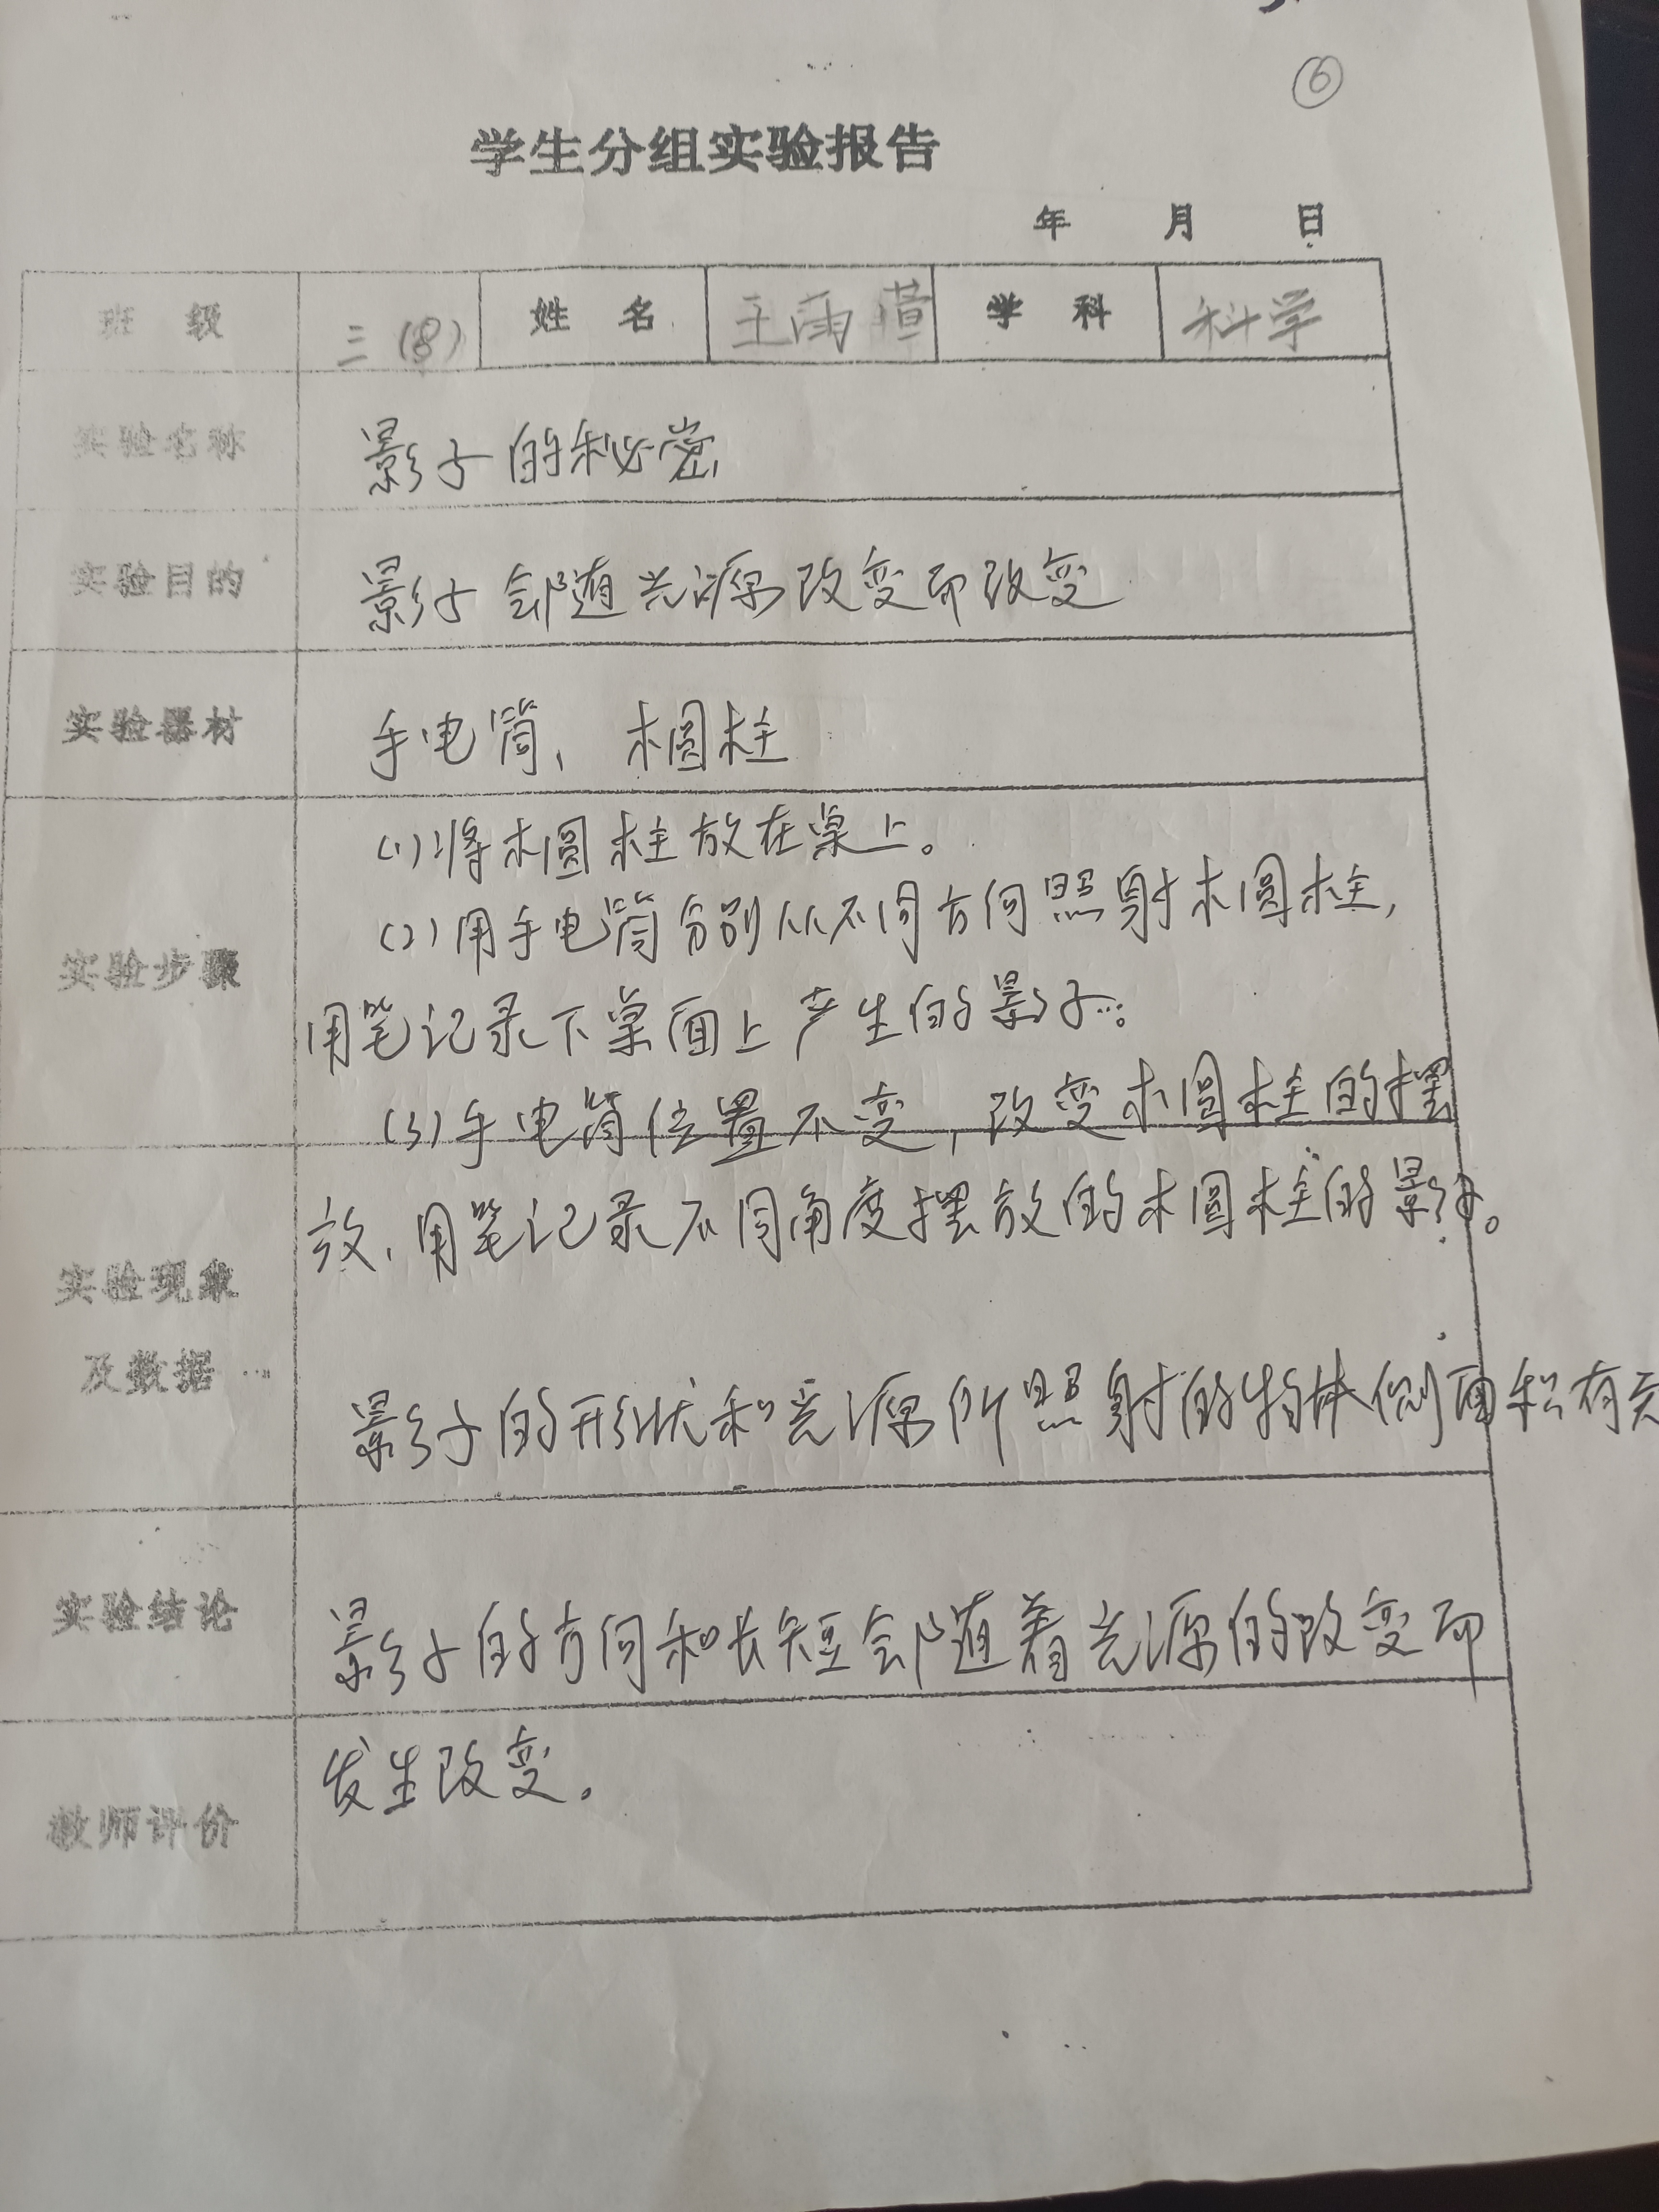 ⑥
学生分组实验报告
年 月 日
班 级 三(8) 姓 名 王雨萱 学 科 科学
实验名称 影子的秘密
实验目的 影子会随光源改变而改变
实验器材 手电筒、木圆柱
(1)将木圆柱放在桌上。
(2)用手电筒分别从不同方向照射木圆柱,
实验步骤
用笔记录下桌面上产生的影子。
(3)手电筒位置不变,改变木圆柱的摆
放、用笔记录不同角度摆放的木圆柱的影子。
实验现象
及数据
影子的形状和光源所照射的物体侧面积有关
实验结论 影子的方向和长短会随着光源的改变而
发生改变。
教师评价